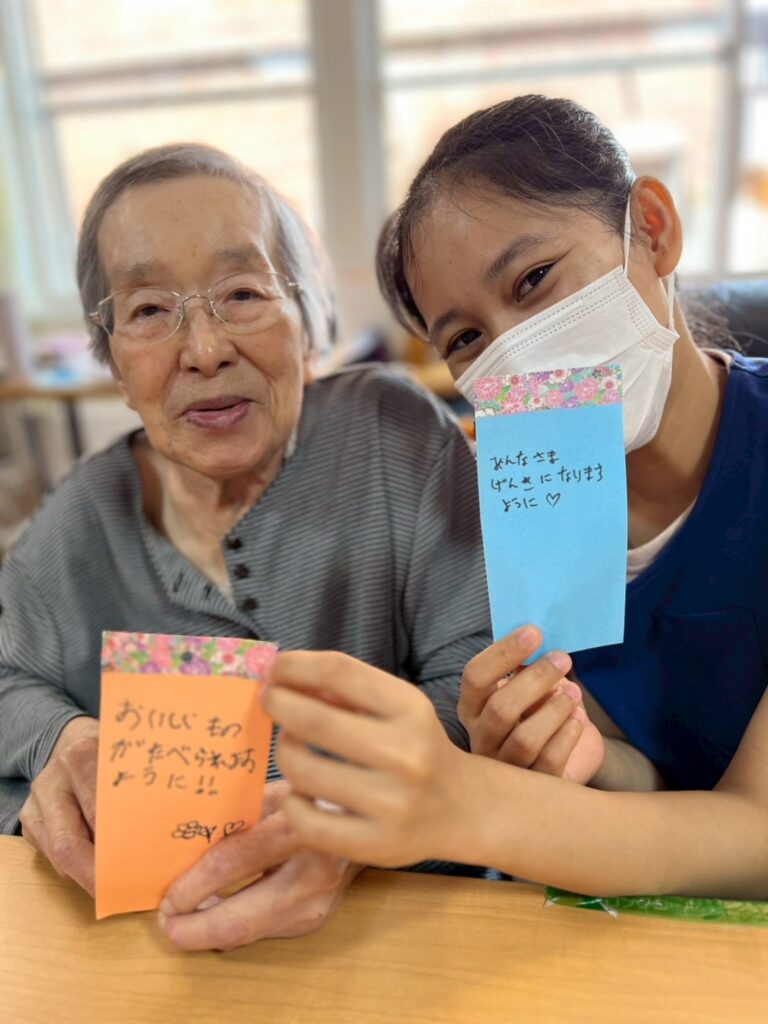 みんなさま
げんきになります
ように♡
おいしいもの
がたべられます
ように!!